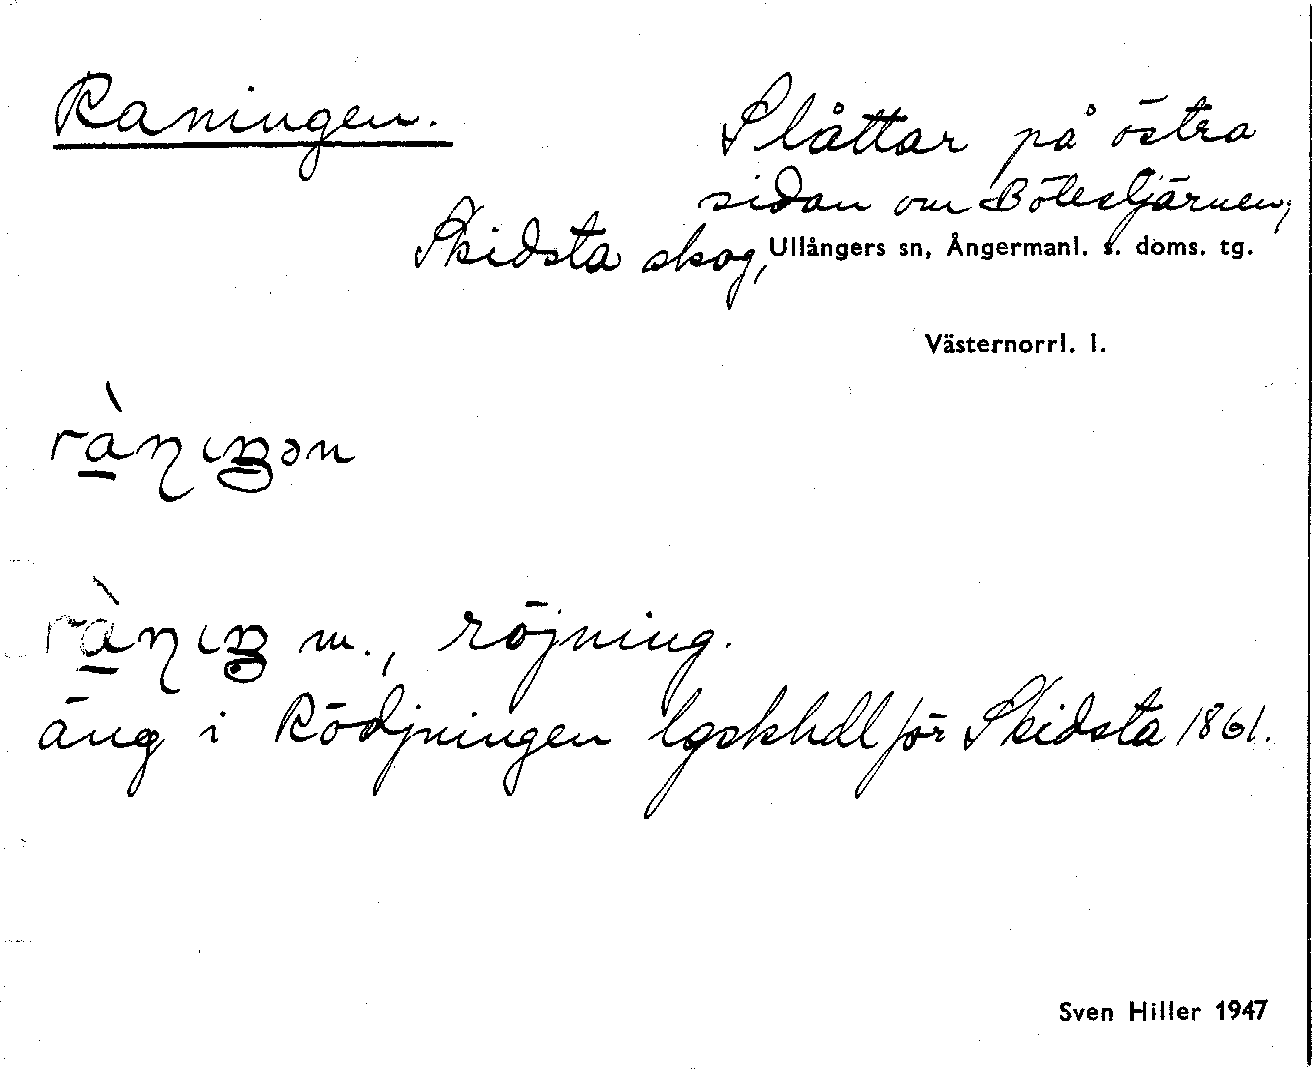 Raningen.
Slåttar på östra
sidan om Bölestjärnen,
Skidsta skog, Ullångers sn, Ångermanl. s. doms. tg.
Västernorrl. l.
m., röjning.
äng i Rödjningen lgskhdl för Skidsta 1861.
Sven Hiller 1947